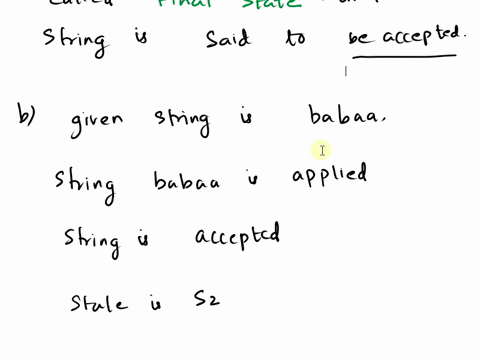 called final state
String is said to be accepted.
b) given string is babaa.
String babaa is applied
String is accepted
State is S2